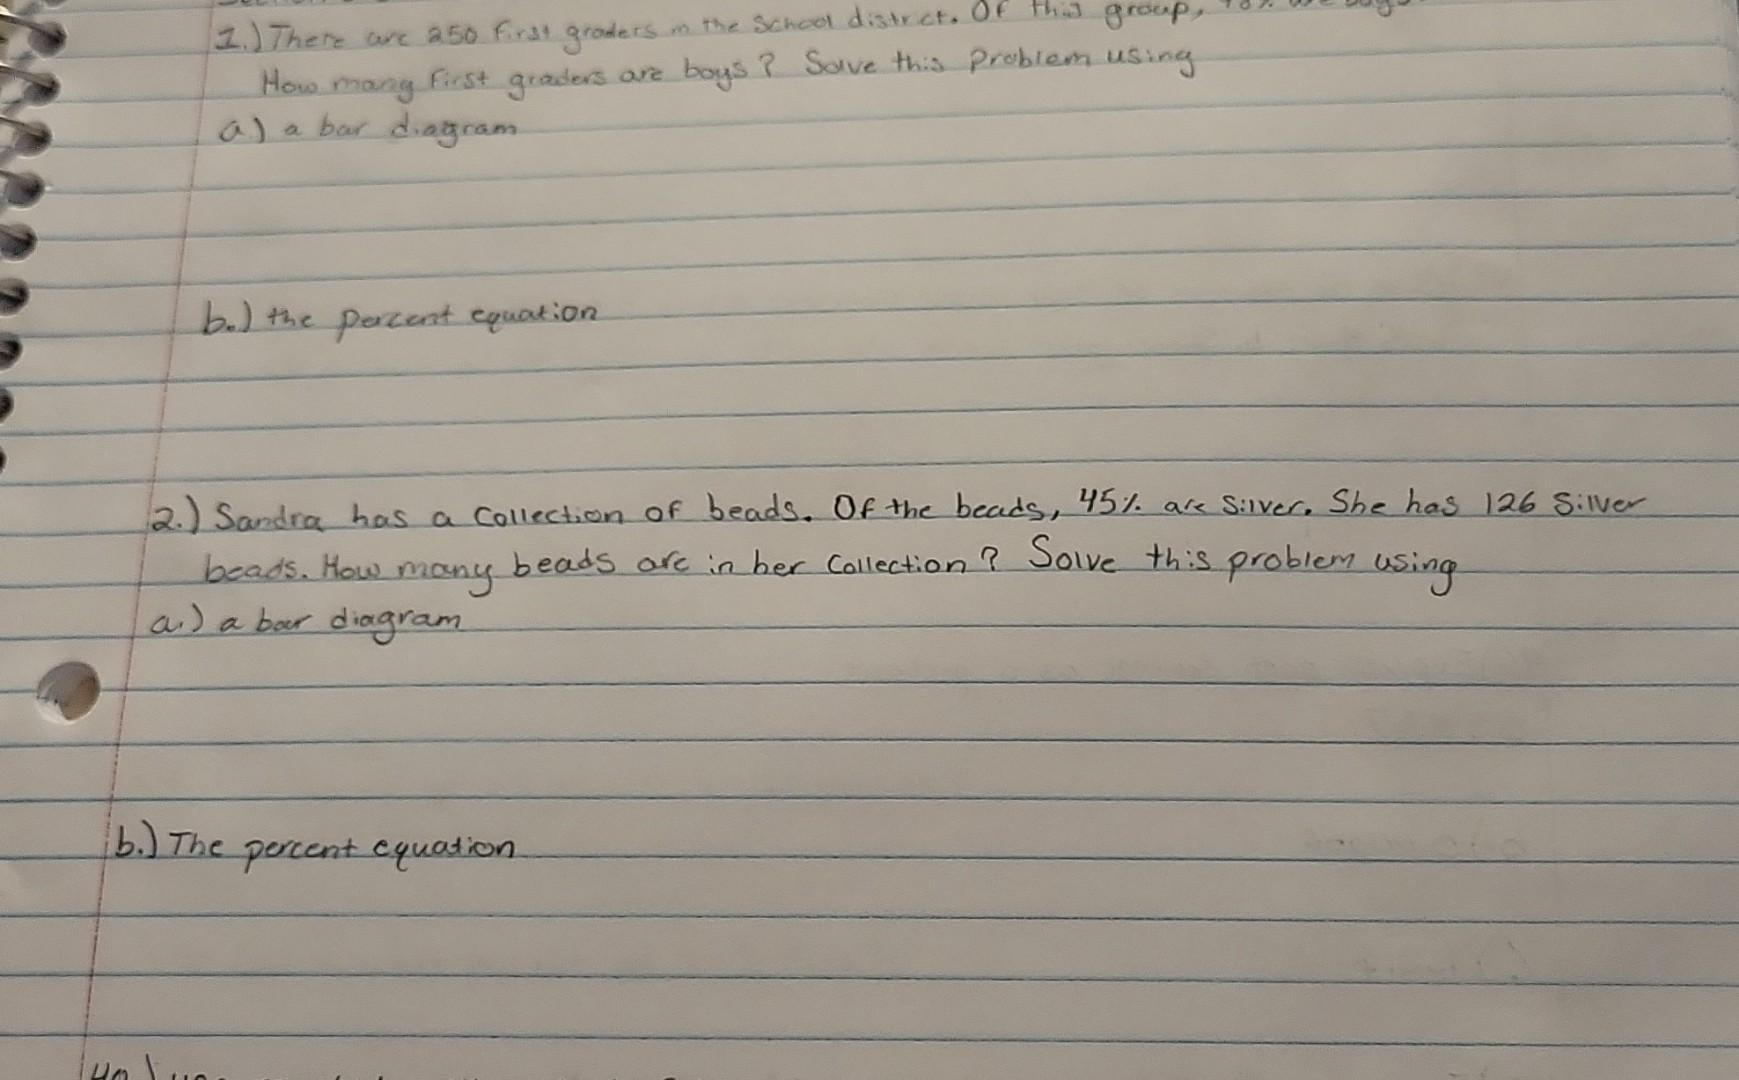 1.) There are 250 first graders in the School district. Of this group,
How many first graders are boys? Solve this problem using
a) a bar diagram
b.) the percent equation
2.) Sandra has a collection of beads. Of the beads, 45% are silver. She has 126 Silver
beads. How many beads are in her collection? Solve this problem using
a.) a bar diagram
b.) The percent equation